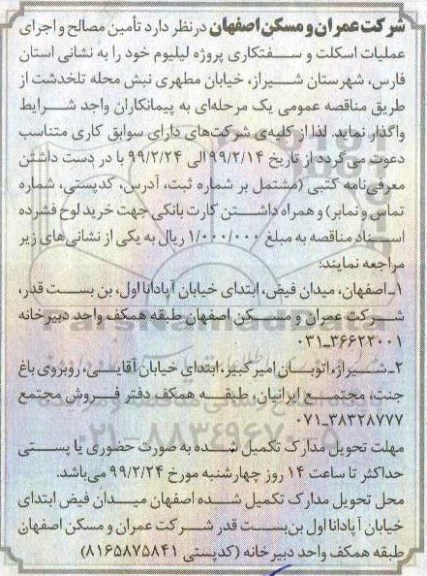 شرکت عمران و مسکن اصفهان در نظر دارد تأمین مصالح و اجرای
عملیات اسکلت و سفتکاری پروژه لیلیوم خود را به نشانی استان
فارس، شهرستان شیراز، خیابان مطهری نبش محله تلخدشت از
طریق مناقصه عمومی یک مرحله‌ای به پیمانکاران واجد شرایط
واگذار نماید. لذا از کلیه‌ی شرکت‌های دارای سوابق کاری متناسب
دعوت می‌گردد از تاریخ ۹۹/۲/۱۴ الی ۹۹/۲/۲۴ با در دست داشتن
معرفی‌نامه کتبی (مشتمل بر شماره ثبت، آدرس، کدپستی، شماره
تماس و نمابر) و همراه داشتن کارت بانکی جهت خرید لوح فشرده
اسناد مناقصه به مبلغ ۱/۰۰۰/۰۰۰ ریال به یکی از نشانی‌های زیر
مراجعه نمایند:
۱ـ اصفهان، میدان فیض، ابتدای خیابان آپادانا اول، بن بست قدر،
شرکت عمران و مسکن اصفهان طبقه همکف واحد دبیرخانه
۰۳۱-۳۶۶۲۲۰۰۱
۲ـ شیراز، اتوبان امیرکبیر، ابتدای خیابان آقایی، روبروی باغ
جنت، مجتمع ایرانیان، طبقه همکف دفتر فروش مجتمع
۰۷۱-۳۸۳۲۸۷۷۷
مهلت تحویل مدارک تکمیل شده به صورت حضوری یا پستی
حداکثر تا ساعت ۱۴ روز چهارشنبه مورخ ۹۹/۲/۲۴ می‌باشد.
محل تحویل مدارک تکمیل شده اصفهان میدان فیض ابتدای
خیابان آپادانا اول بن‌بست قدر شرکت عمران و مسکن اصفهان
طبقه همکف واحد دبیرخانه (کدپستی ۸۱۶۵۸۷۵۸۴۱)
ParsNamadData
۰۲۱-۸۸۳۴۹۶۷۰-۵